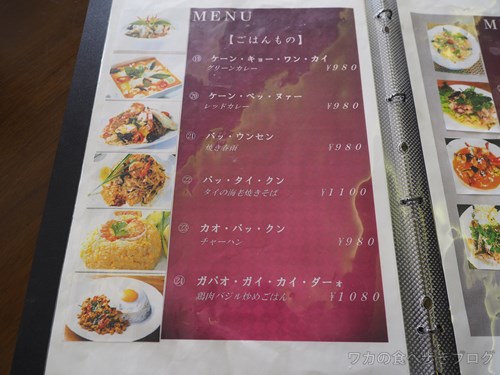 MENU
【ごはんもの】
⑲ ケーン・キョー・ワン・カイ
グリーンカレー ¥980
⑳ ケーン・ペッ・ヌァー
レッドカレー ¥980
㉑ パッ・ウンセン
焼き春雨 ¥980
㉒ パッ・タイ・クン
タイの海老焼きそば ¥1100
㉓ カオ・パッ・クン
チャーハン ¥980
㉔ ガパオ・ガイ・カイ・ダーォ
鶏肉バジル炒めごはん ¥1080
M